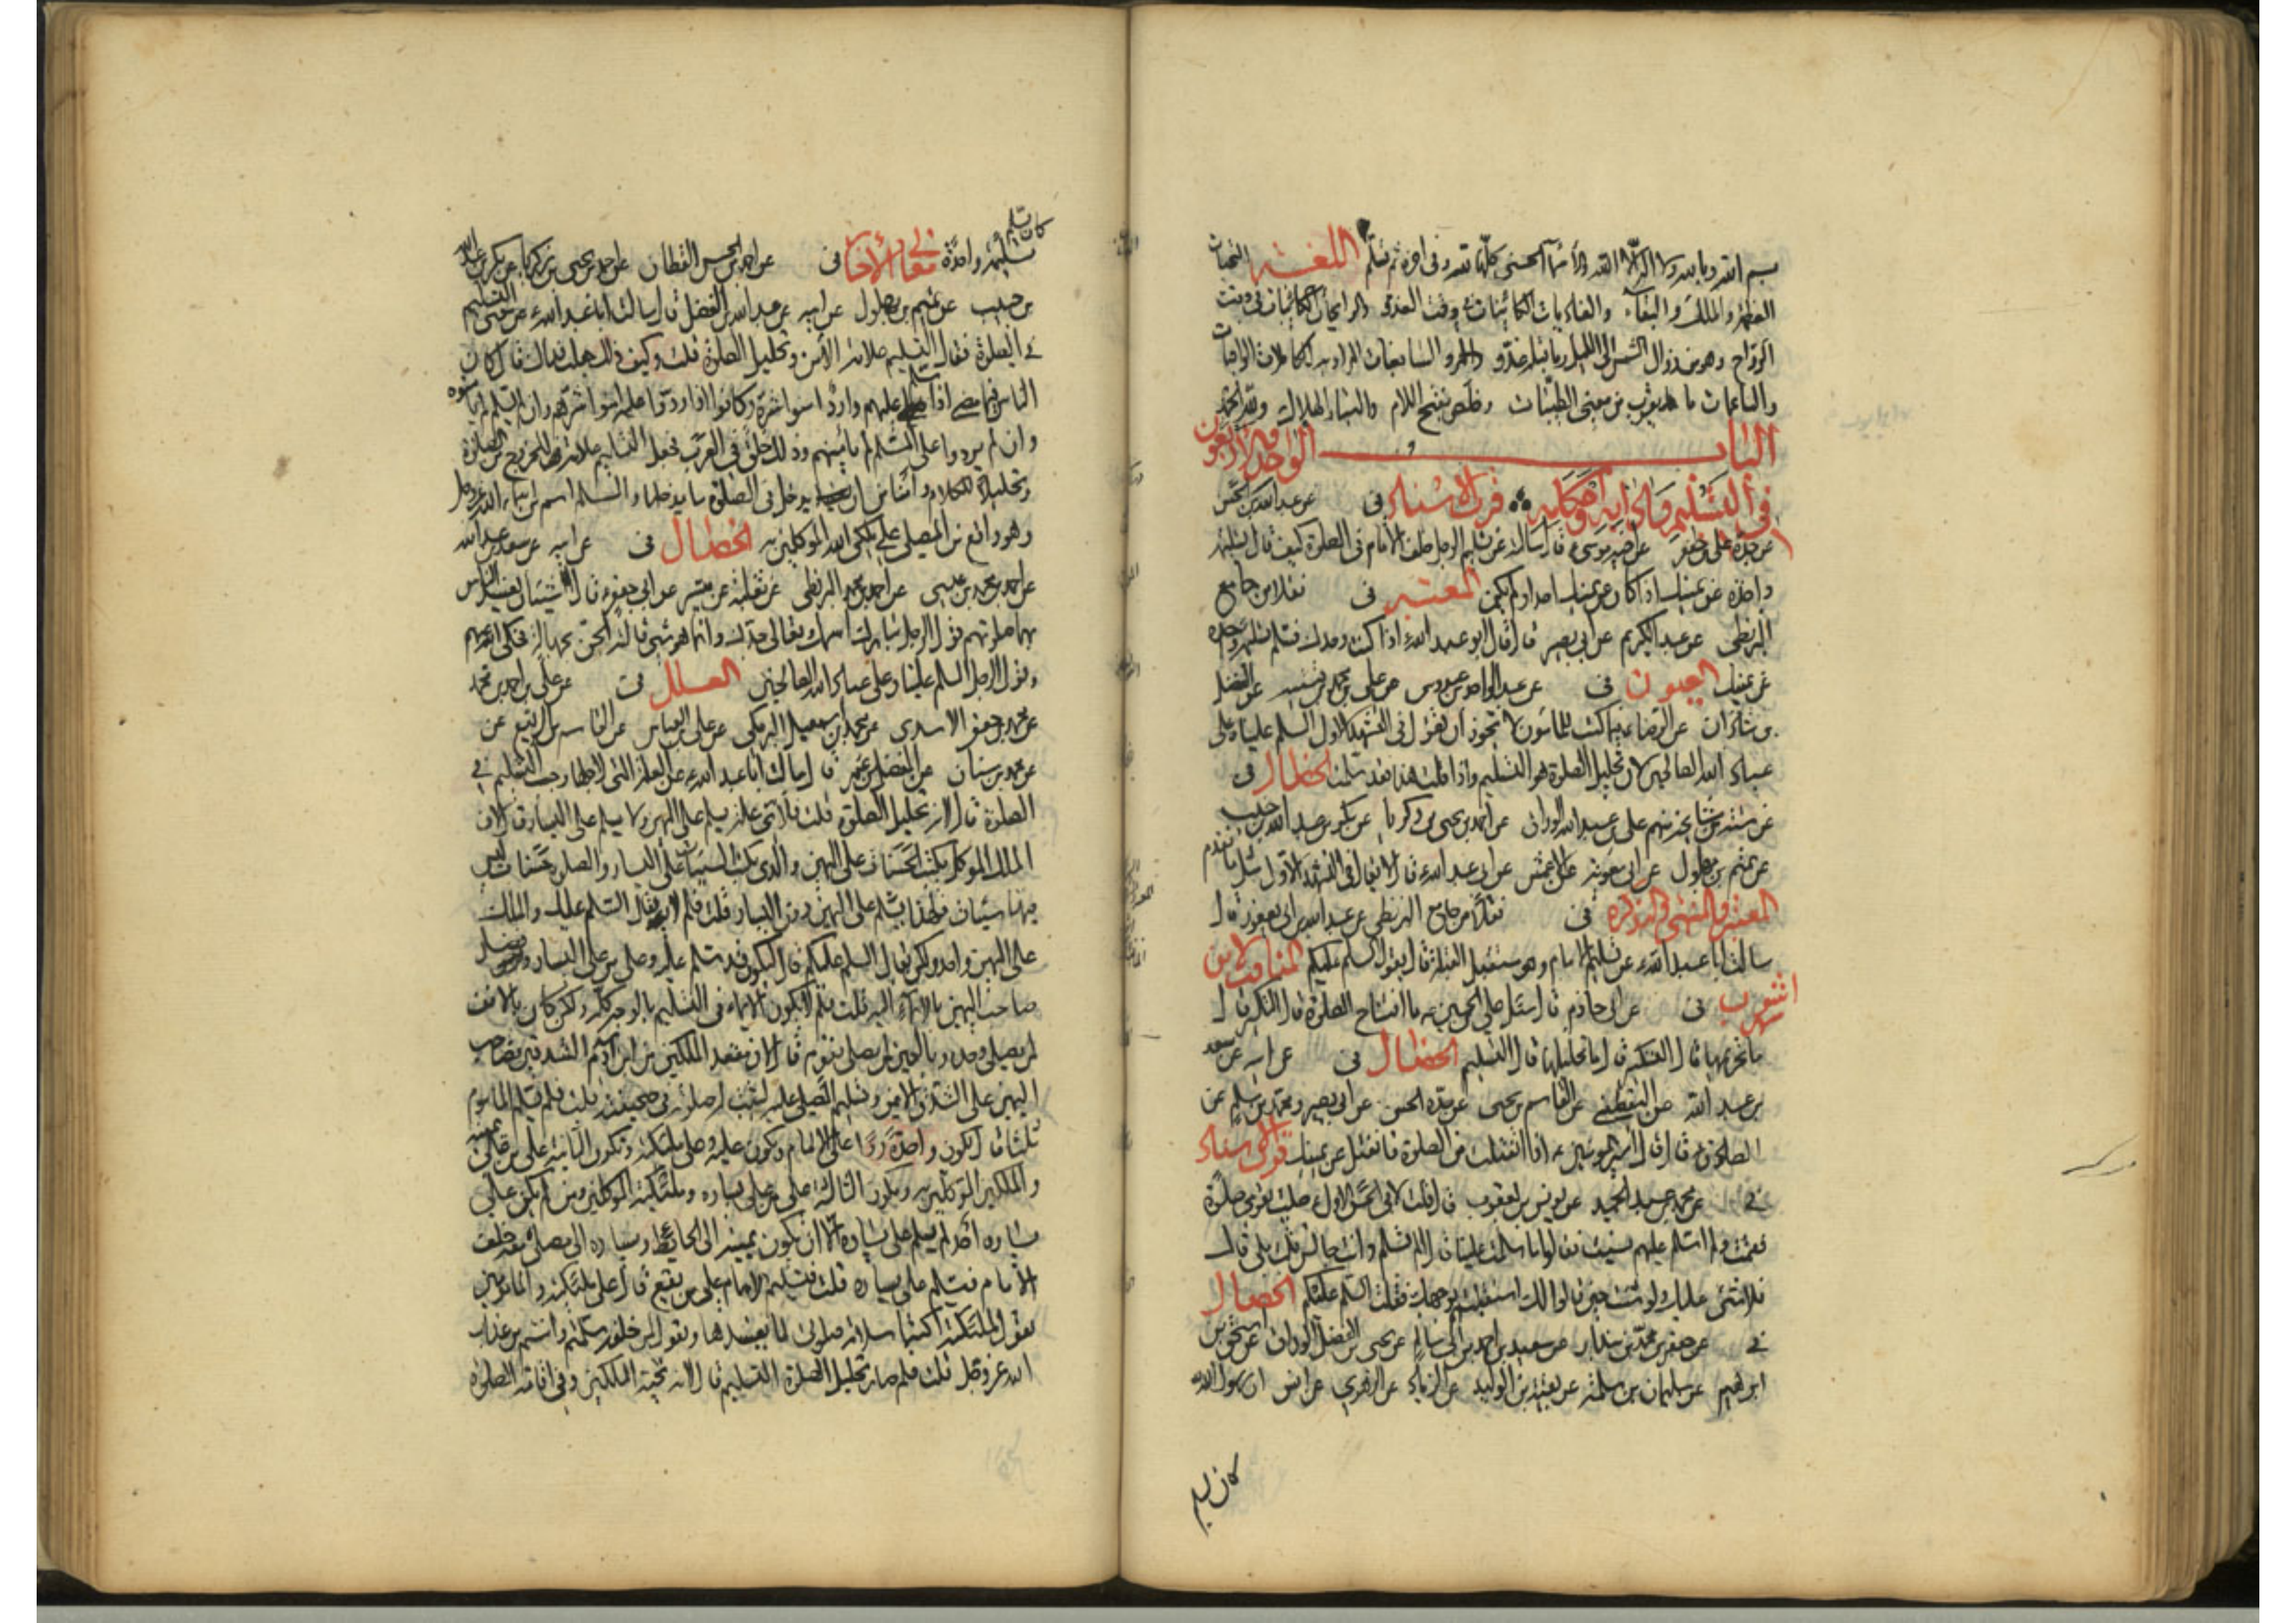 بسم الله وبالله ولا اله الا الله والأسماء الحسنى كلها لله وفي اخره ثم تسلم اللغة التحيات
العظمة والملك والبقاء والغاديات الكائنات وقت الغدو والرايحات الكائنات في وقت
الرواح وهو من زوال الشمس الى الليل وما قبله غدو والسابغات الكاملات الوافيات
والناعمات ما يقرب من معنى الطيبات وخلص بفتح اللام
الباب الواحد والاربعون
في التسليم وادابه واحكامه قرب الاسناد في عن عبد الله بن الحسن
عن جده علي بن جعفر عن اخيه موسى ع قال سالته عن تسليم الرجل خلف الامام في الصلوة كيف قال تسليمة
واحدة عن يمينك اذا كان عن يمينك احد او لم يكن المعتبر في نقلا من جامع
البزنطي عن عبد الكريم عن ابي بصير قال قال ابو عبد الله ع اذا كنت وحدك فسلم تسليمة واحدة
عن يمينك العيون في عن عبد الواحد بن عبدوس عن علي بن محمد بن قتيبة عن الفضل
بن شاذان عن الرضا ع فيما كتب للمامون لا يجوز ان تقول في التشهد الاول السلم علينا وعلى
عباد الله الصالحين لان تحليل الصلوة هو التسليم واذا قلت هذا فقد سلمت الخصال في
عن ستة من مشايخه منهم علي بن عبد الله الوراق عن احمد بن يحيى بن زكريا عن بكر بن عبد الله بن حبيب
عن تميم بن بهلول عن ابي معوية عن الاعمش عن ابي عبد الله ع قال لا يقال في التشهد الاول مثل ما تقدم
المعتبر والمنتهى والتذكرة في نقلا من جامع البزنطي عن عبد الله بن ابي يعفور قال
سالت ابا عبد الله ع عن تسليم الامام وهو مستقبل القبلة قال يقول السلم عليكم المناقب لابن
شهر اشوب في عن ابي حازم قال سئل علي بن الحسين ع ما افتتاح الصلوة قال التكبير قال
ما تحريمها قال التكبير قال ما تحليلها قال التسليم الخصال في عن ابيه عن سعد
بن عبد الله عن اليقطيني عن القاسم بن يحيى عن جده الحسن عن ابي بصير ومحمد بن مسلم عن
الصادق ع قال قال امير المؤمنين ع اذا انفتلت من الصلوة فانفتل عن يمينك قرب الاسناد
في عن محمد بن عبد الحميد عن يونس بن يعقوب قال قلت لابي الحسن الاول ع صليت بقوم صلوة
فقمت ولم اسلم عليهم نسيت فقالوا ما سلمت علينا قال الم تسلم وانت جالس قلت بلى قال
فلا شئ عليك ولو شئت حين قالوا لك استقبلتهم بوجهك فقلت السلم عليكم الخصال
في عن جعفر بن محمد بن بندار عن سعيد بن احمد بن ابي سالم عن يحيى بن الفضل الوراق عن اسحق بن
ابراهيم عن سليمان بن سلمة عن بقية بن الوليد عن الزبيدي عن الزهري عن انس ان رسول الله
كان يسلم
كان يسلم
تسليمة واحدة معاني الأخبار في عن احمد بن الحسن القطان عن احمد بن يحيى بن زكريا عن بكر بن عبد الله
بن حبيب عن تميم بن بهلول عن ابيه عن عبد الله بن الفضل قال سالت ابا عبد الله ع عن معنى التسليم
في الصلوة فقال التسليم علامة الأمن وتحليل الصلوة قلت وكيف ذلك جعلت فداك قال كان
الناس فيما مضى اذا سلم عليهم وارد امنوا شره وكانوا اذا ردوا عليه امن شرهم وان لم يسلم لم يامنوه
وان لم يردوا على المسلم لم يامنهم وذلك خلق في العرب فجعل التسليم علامة للخروج من الصلوة
وتحليلا للكلام وامنا من ان يدخل في الصلوة ما يفسدها والسلم اسم من اسماء الله عز وجل
وهو واقع من المصلي على ملكي الله الموكلين به الخصال في عن ابيه عن سعد بن عبد الله
عن احمد بن محمد بن عيسى عن احمد بن محمد البزنطي عن ثعلبة عن ميسر عن ابي جعفر ع قال شيئان يفسد الناس
بهما صلوتهم قول الرجل تبارك اسمك وتعالى جدك وانما هو شئ قالته الجن بجهالة فحكى الله عنهم
وقول الرجل السلم علينا وعلى عباد الله الصالحين العلل في عن علي بن احمد بن محمد
عن محمد بن جعفر الاسدي عن محمد بن اسمعيل البرمكي عن علي بن العباس عن القاسم بن الربيع عن
عن محمد بن سنان عن المفضل بن عمر قال سالت ابا عبد الله ع عن العلة التي من اجلها وجب التسليم في
الصلوة قال لانه تحليل الصلوة قلت فلاي علة يسلم على اليمين ولا يسلم على اليسار قال لان
الملك الموكل يكتب الحسنات على اليمين والذي يكتب السيئات على اليسار والصلوة حسنات ليس
فيها سيئات فلهذا يسلم على اليمين دون اليسار قلت فلم لا يقال السلم عليك والملك
على اليمين واحد ولكن يقال السلم عليكم قال ليكون قد سلم عليه وعلى من على اليسار وفضل
صاحب اليمين بالايماء اليه قلت فلم لا يكون الايماء في التسليم بالوجه كله ولكن كان بالانف
لمن يصلي وحده وبالعين لمن يصلي بقوم قال لان مقعد الملكين من ابن آدم الشدقين فصاحب
اليمين على الشدق الايمن وتسليم المصلي عليه ليثبت له صلوته في صحيفته قلت فلم يسلم الماموم
ثلثا قال يكون واحدة ردا على الامام ويكون عليه وعلى ملئكته وتكون الثانية على من على يمينه
والملكين الموكلين به وتكون الثالثة على من على يساره وملئكته الموكلين به ومن لم يكن على
يساره احد لم يسلم على يساره الا ان يكون يمينه الى الحائط ويساره الى مصلى معه خلف
الامام فيسلم على يساره قلت فتسليم الامام على من يقع قال على ملئكته والمامومين
يقول لملئكته اكتبا سلامة صلوتي لما يفسدها ويقول لمن خلفه سلمتم وامنتم من عذاب
الله عز وجل قلت فلم صار تحليل الصلوة التسليم قال لانه تحية الملكين وفي اقامة الصلوة